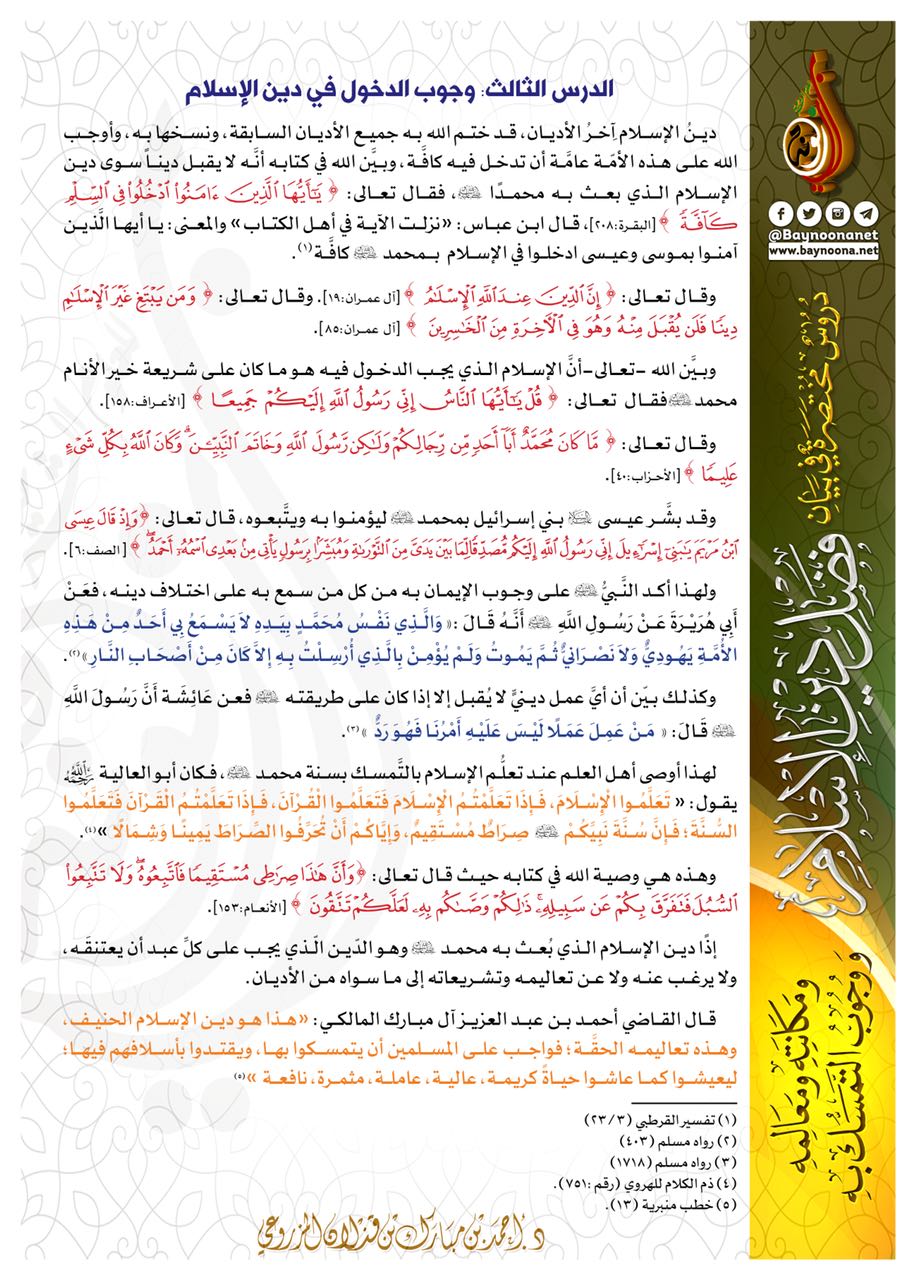 الدرس الثالث: وجوب الدخول في دين الإسلام
دينُ الإسلام آخرُ الأديان، قد ختم الله به جميع الأديان السابقة، ونسخها به، وأوجب
الله على هذه الأمّة عامّة أن تدخل فيه كافّة، وبيَّن الله في كتابه أنَّه لا يقبل ديناً سوى دين
الإسلام الذي بعث به محمدًا ﷺ، فقال تعالى: ﴿ يَٰٓأَيُّهَا ٱلَّذِينَ ءَامَنُوا۟ ٱدْخُلُوا۟ فِى ٱلسِّلْمِ
كَآفَّةً ﴾ [البقرة:٢٠٨]، قال ابن عباس: «نزلت الآية في أهل الكتاب» والمعنى: يا أيها الَّذين
آمنوا بموسى وعيسى ادخلوا في الإسلام بـمحمد ﷺ كافَّة(١).
وقال تعالى: ﴿ إِنَّ ٱلدِّينَ عِندَ ٱللَّهِ ٱلْإِسْلَٰمُ ﴾ [آل عمران:١٩]. وقال تعالى: ﴿ وَمَن يَبْتَغِ غَيْرَ ٱلْإِسْلَٰمِ
دِينًا فَلَن يُقْبَلَ مِنْهُ وَهُوَ فِى ٱلْءَاخِرَةِ مِنَ ٱلْخَٰسِرِينَ ﴾ [آل عمران:٨٥].
وبيَّن الله -تعالى-أنَّ الإسلام الذي يجب الدخول فيه هو ما كان على شريعة خير الأنام
محمد ﷺ فقال تعالى: ﴿ قُلْ يَٰٓأَيُّهَا ٱلنَّاسُ إِنِّى رَسُولُ ٱللَّهِ إِلَيْكُمْ جَمِيعًا ﴾ [الأعراف:١٥٨].
وقال تعالى: ﴿ مَّا كَانَ مُحَمَّدٌ أَبَآ أَحَدٍ مِّن رِّجَالِكُمْ وَلَٰكِن رَّسُولَ ٱللَّهِ وَخَاتَمَ ٱلنَّبِيِّـۧنَ ۗ وَكَانَ ٱللَّهُ بِكُلِّ شَىْءٍ
عَلِيمًا ﴾ [الأحزاب:٤٠].
وقد بشَّر عيسى ﵇ بني إسرائيل بمحمد ﷺ ليؤمنوا به ويتَّبعوه، قال تعالى: ﴿وَإِذْ قَالَ عِيسَى
ٱبْنُ مَرْيَمَ يَٰبَنِىٓ إِسْرَٰٓءِيلَ إِنِّى رَسُولُ ٱللَّهِ إِلَيْكُم مُّصَدِّقًا لِّمَا بَيْنَ يَدَىَّ مِنَ ٱلتَّوْرَىٰةِ وَمُبَشِّرًۢا بِرَسُولٍ يَأْتِى مِنۢ بَعْدِى ٱسْمُهُۥٓ أَحْمَدُ ۖ ﴾ [الصف:٦].
ولهذا أكد النَّبيُّ ﷺ على وجوب الإيمان به من كل من سمع به على اختلاف دينه، فعَنْ
أَبِي هُرَيْرَةَ عَنْ رَسُولِ اللَّهِ ﷺ أَنَّهُ قَالَ :« وَالَّذِي نَفْسُ مُحَمَّدٍ بِيَدِهِ لاَ يَسْمَعُ بِي أَحَدٌ مِنْ هَذِهِ
الأُمَّةِ يَهُودِيٌّ وَلاَ نَصْرَانِيٌّ ثُمَّ يَمُوتُ وَلَمْ يُؤْمِنْ بِالَّذِي أُرْسِلْتُ بِهِ إِلاَّ كَانَ مِنْ أَصْحَابِ النَّارِ»(٢).
وكذلك بيّن أن أيَّ عمل دينيٍّ لا يُقبل إلا إذا كان على طريقته ﷺ فعن عَائِشَة أَنَّ رَسُولَ اللَّهِ
ﷺ قَالَ: « مَنْ عَمِلَ عَمَلًا لَيْسَ عَلَيْهِ أَمْرُنَا فَهُوَ رَدٌّ »(٣).
لهذا أوصى أهل العلم عند تعلُّم الإسلام بالتَّمسك بسنة محمد ﷺ، فكان أبو العالية رَحِمَهُ اللَّهُ
يقول: « تَعَلَّمُوا الْإِسْلَامَ، فَإِذَا تَعَلَّمْتُمُ الْإِسْلَامَ فَتَعَلَّمُوا الْقُرْآنَ، فَإِذَا تَعَلَّمْتُمُ الْقُرْآنَ فَتَعَلَّمُوا
السُّنَّةَ؛ فَإِنَّ سُنَّةَ نَبِيِّكُمْ ﷺ صِرَاطٌ مُسْتَقِيمٌ، وَإِيَّاكُمْ أَنْ تُحَرِّفُوا الصِّرَاطَ يَمِينًا وَشِمَالًا »(٤).
وهذه هي وصية الله في كتابه حيث قال تعالى: ﴿وَأَنَّ هَٰذَا صِرَٰطِى مُسْتَقِيمًا فَٱتَّبِعُوهُ ۖ وَلَا تَتَّبِعُوا۟
ٱلسُّبُلَ فَتَفَرَّقَ بِكُمْ عَن سَبِيلِهِۦ ۚ ذَٰلِكُمْ وَصَّىٰكُم بِهِۦ لَعَلَّكُمْ تَتَّقُونَ ﴾ [الأنعام:١٥٣].
إذًا دين الإسلام الذي بُعث به محمد ﷺ وهو الدّين الّذي يجب على كلِّ عبد أن يعتنقَه،
ولا يرغب عنه ولا عن تعاليمه وتشريعاته إلى ما سواه من الأديان.
قال القاضي أحمد بن عبد العزيز آل مبارك المالكي: «هذا هو دين الإسلام الحنيف،
وهذه تعاليمه الحقَّة؛ فواجب على المسلمين أن يتمسكوا بها، ويقتدوا بأسلافهم فيها؛
ليعيشوا كما عاشوا حياةً كريمة، عالية، عاملة، مثمرة، نافعة »(٥)
(١) تفسير القرطبي (٢٣/٣)
(٢) رواه مسلم (٤٠٣)
(٣) رواه مسلم (١٧١٨)
(٤) ذم الكلام للهروي (رقم :٧٥١).
(٥) خطب منبرية (١٣).
د. أحمد بن مبارك بن قذلان المزروعي
@Baynoonanet
www.baynoona.net
دروس مختصرة في بيان
فضل دين الإسلام
ومكانته ومعالمه
ووجوب التمسك به